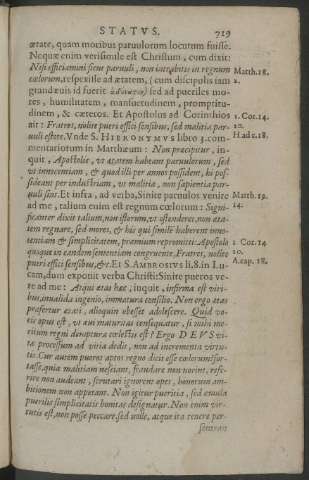 STATVS. 719
ætate, quam moribus paruulorum locutum fuisse.
Neque enim verisimile est Christum, cum dixit:
Nisi efficiamini sicut paruuli, non intrabitis in regnum
cælorum, respexisse ad ætatem, (cum discipulis iam
grandæuis id fuerit) sed ad pueriles mo-
res, humilitatem, mansuetudinem, promptitu-
dinem, & cæteros. Et Apostolus ad Corinthios
ait: Fratres, nolite pueri effici sensibus, sed malitia par-
uuli estote. Vnde S. HIERONYMVS libro 3. com-
mentariorum in Matthæum: Non præcipitur, in-
quit, Apostolis, vt ætatem habeant paruulorum, sed
vt innocentiam, & quod illi per annos possident, hi pos-
sideant per industriam, vt malitia, non sapientia par-
uuli sint. Et infra, ad verba, Sinite paruulos venire
ad me, talium enim est regnum cælorum: Signi-
ficanter dixit talium, non istorum, vt ostenderet, non æta-
tem regnare, sed mores, & his qui similē haberent inno-
centiam & simplicitatem, præmium repromitti: Apostolo
quoque in eandem sententiam congruente, Fratres, nolite
pueri effici sensibus, &c. Et S. AMBROSIVS li. 8. in Lu-
cam, dum exponit verba Christi: Sinite pueros ve-
re ad me: Atqui ætas hæc, inquit, infirma est viri-
bus, inualida ingenio, immatura consilio. Non ergo ætas
præfertur ætati, alioquin obesset adolescere. Quid vo-
tis opus est, vt æui maturitas consequatur, si mihi me-
ritum regni deceptura cælestis est? Ergo DEVS vi-
tæ processum ad vitia dedit, non ad incrementa virtu-
tis. Cur autem pueros aptos regno dicit esse cælorum? for-
tasse quia malitiam nesciant, fraudare non norint, refe-
rire non audeant, scrutari ignorent opes, honorem am-
bitionem non appetant. Non igitur pueritia, sed æmula
puerilis simplicitatis bonitas designatur. Non enim vir-
tutis est, non posse peccare, sed nolle, atque ita tenere per-
Matth. 18.
2.
1. Cor. 14.
20.
Matth. 19.
14.
1 Cor. 14
20.
A. cap. 18.